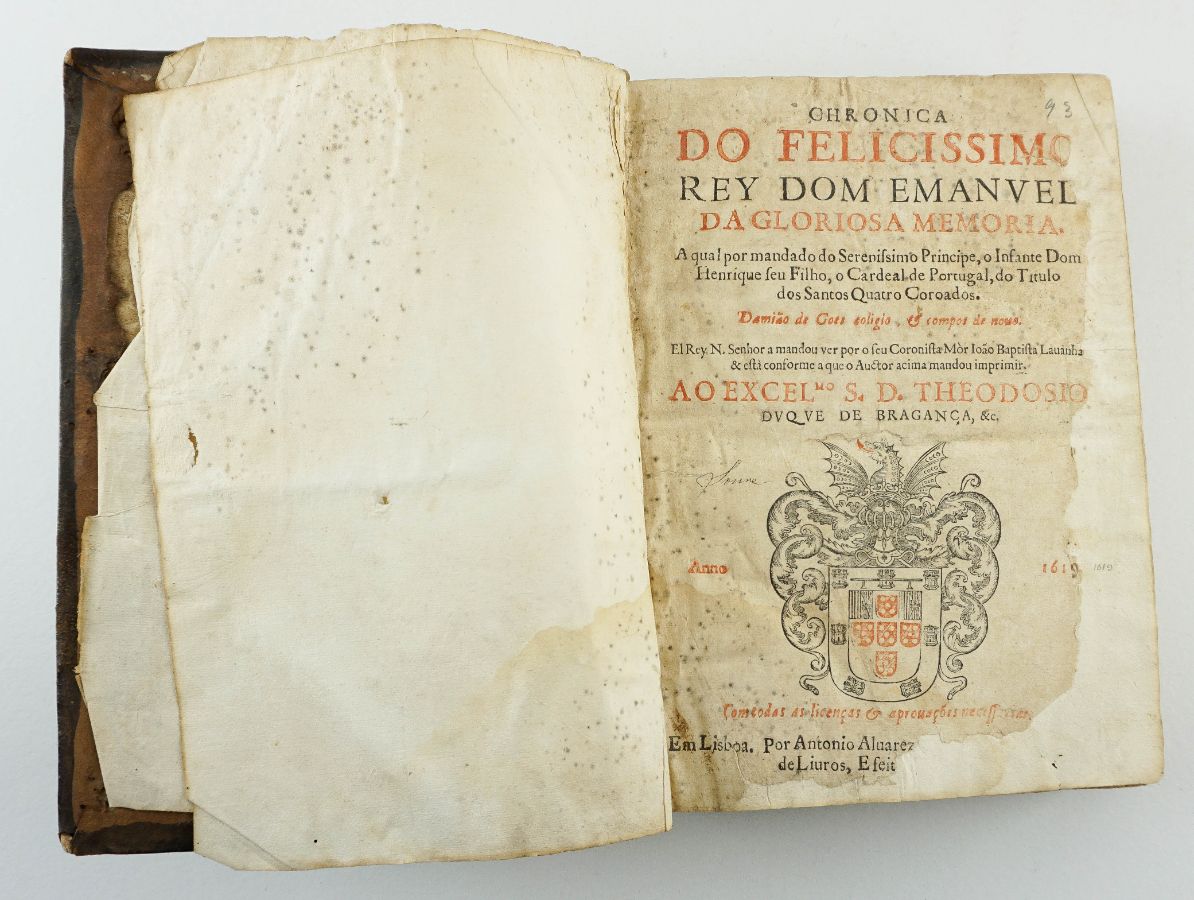 93
CHRONICA
DO FELICISSIMO
REY DOM EMANVEL
DA GLORIOSA MEMORIA.
A qual por mandado do Sereniſsimo Principe, o Infante Dom
Henrique ſeu Filho, o Cardeal de Portugal, do Titulo
dos Santos Quatro Coroados.
Damião de Goes coligio, & compos de nouo.
El Rey N. Senhor a mandou ver por o ſeu Coroniſta Mòr Ioão Baptiſta Lauanha
& eſtà conforme a que o Auctor acima mandou imprimir.
AO EXCEL.MO S. D. THEODOSIO
DVQVE DE BRAGANÇA, &c.
Anno 1619 1619
Com todas as licenças & aprouações neceſſarias.
Em Lisboa. Por Antonio Aluarez
de Liuros, E feit